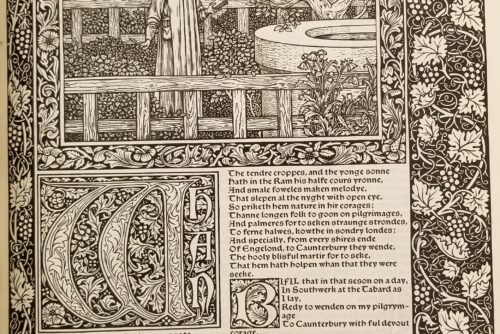 WHAN
The tendre croppes, and the yonge sonne
Hath in the Ram his halfe cours yronne,
And smale foweles maken melodye,
That slepen al the nyght with open eye,
So priketh hem nature in hir corages;
Thanne longen folk to goon on pilgrimages,
And palmeres for to seken straunge strondes,
To ferne halwes, kowthe in sondry londes;
And specially, from every shires ende
Of Engelond, to Caunterbury they wende,
The hooly blisful martir for to seke,
That hem hath holpen whan that they were
seeke.
BIFIL that in that seson on a day,
In Southwerk at the Tabard as
I lay,
Redy to wenden on my pilgrym-
age
To Caunterbury with ful devout
corage